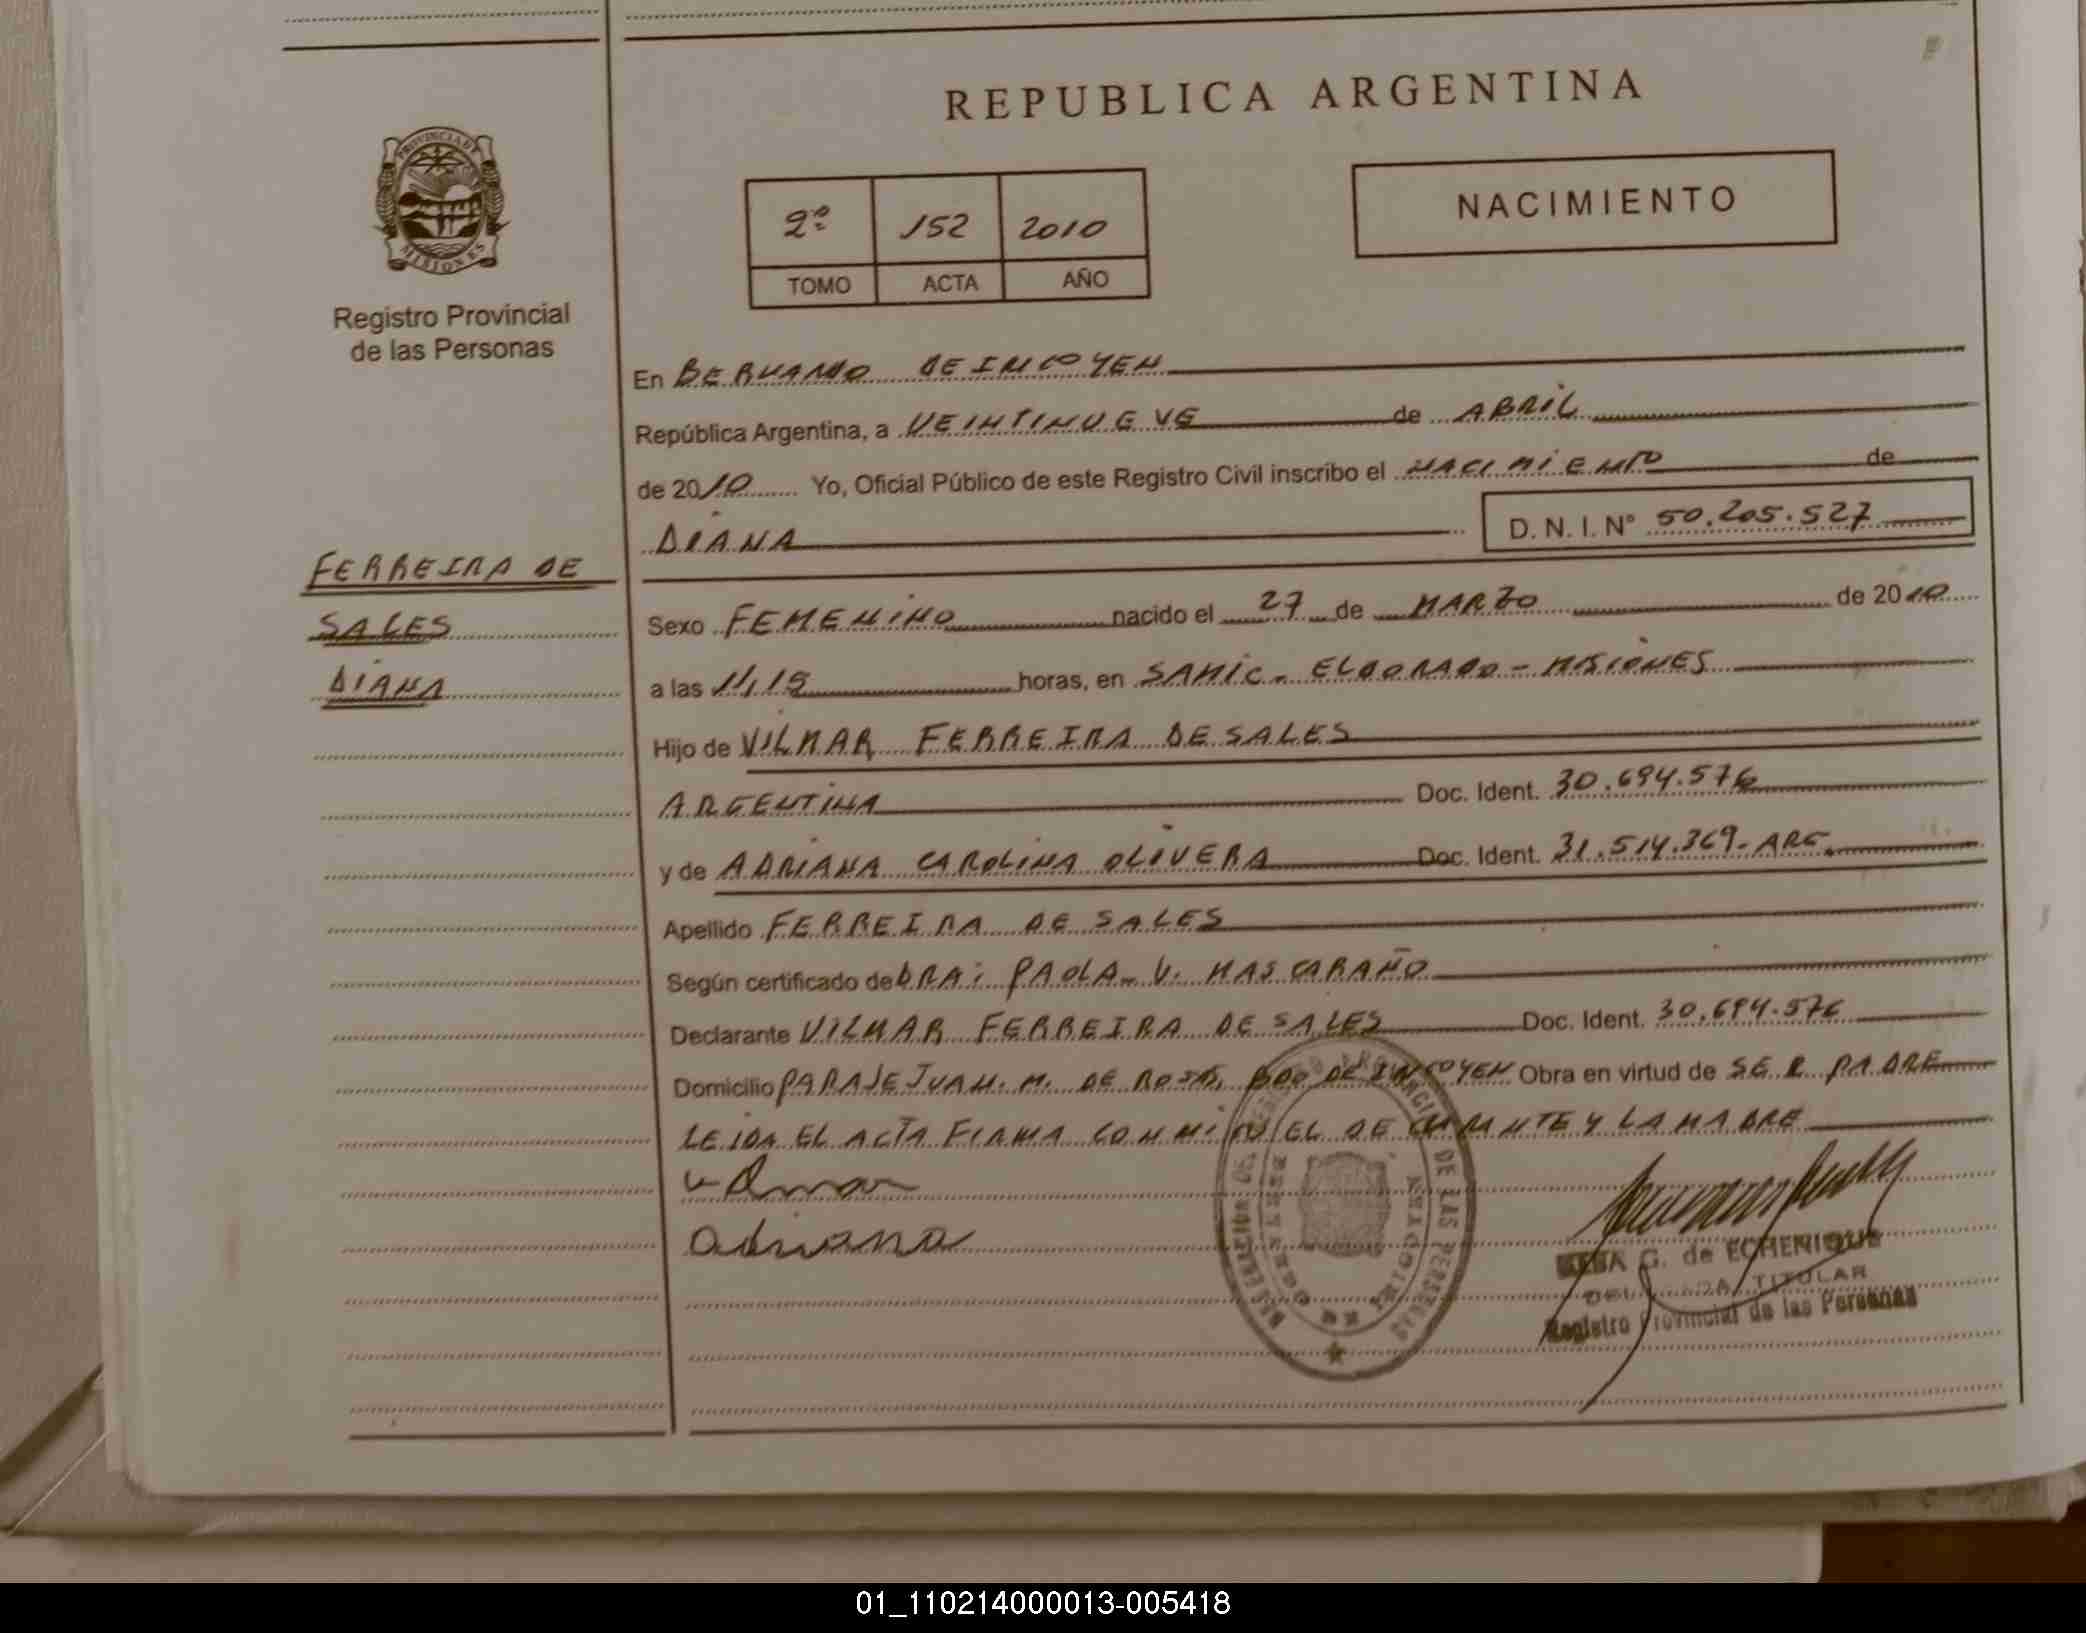 REPUBLICA ARGENTINA
PROVINCIA DE MISIONES
Registro Provincial
de las Personas
2º 152 2010
TOMO ACTA AÑO
NACIMIENTO
En BERNARDO DE IRIGOYEN
República Argentina, a VEINTINUEVE de ABRIL
de 2010 Yo, Oficial Público de este Registro Civil inscribo el NACIMIENTO de
DIANA D. N. I. Nº 50.205.527
FERREIRA DE
SALES
DIANA
Sexo FEMENINO nacido el 27 de MARZO de 2010
a las 11,15 horas, en SAMIC - ELDORADO - MISIONES
Hijo de VILMAR FERREIRA DE SALES
ARGENTINA Doc. Ident. 30.694.576
y de ADRIANA CAROLINA OLIVERA Doc. Ident. 31.514.369 - ARG.
Apellido FERREIRA DE SALES
Según certificado de DRA: PAOLA - V. MASCARAÑO
Declarante VILMAR FERREIRA DE SALES Doc. Ident. 30.694.576
Domicilio PARAJE JUAN. M. DE ROSAS, BDO DE IRIGOYEN Obra en virtud de SER PADRE
LEIDA EL ACTA FIRMA CONMIGO EL DECLARANTE Y LA MADRE
Vilmar
Adriana
G. de ECHENIQUE
DELEGADA TITULAR
Registro Provincial de las Personas
01_110214000013-005418